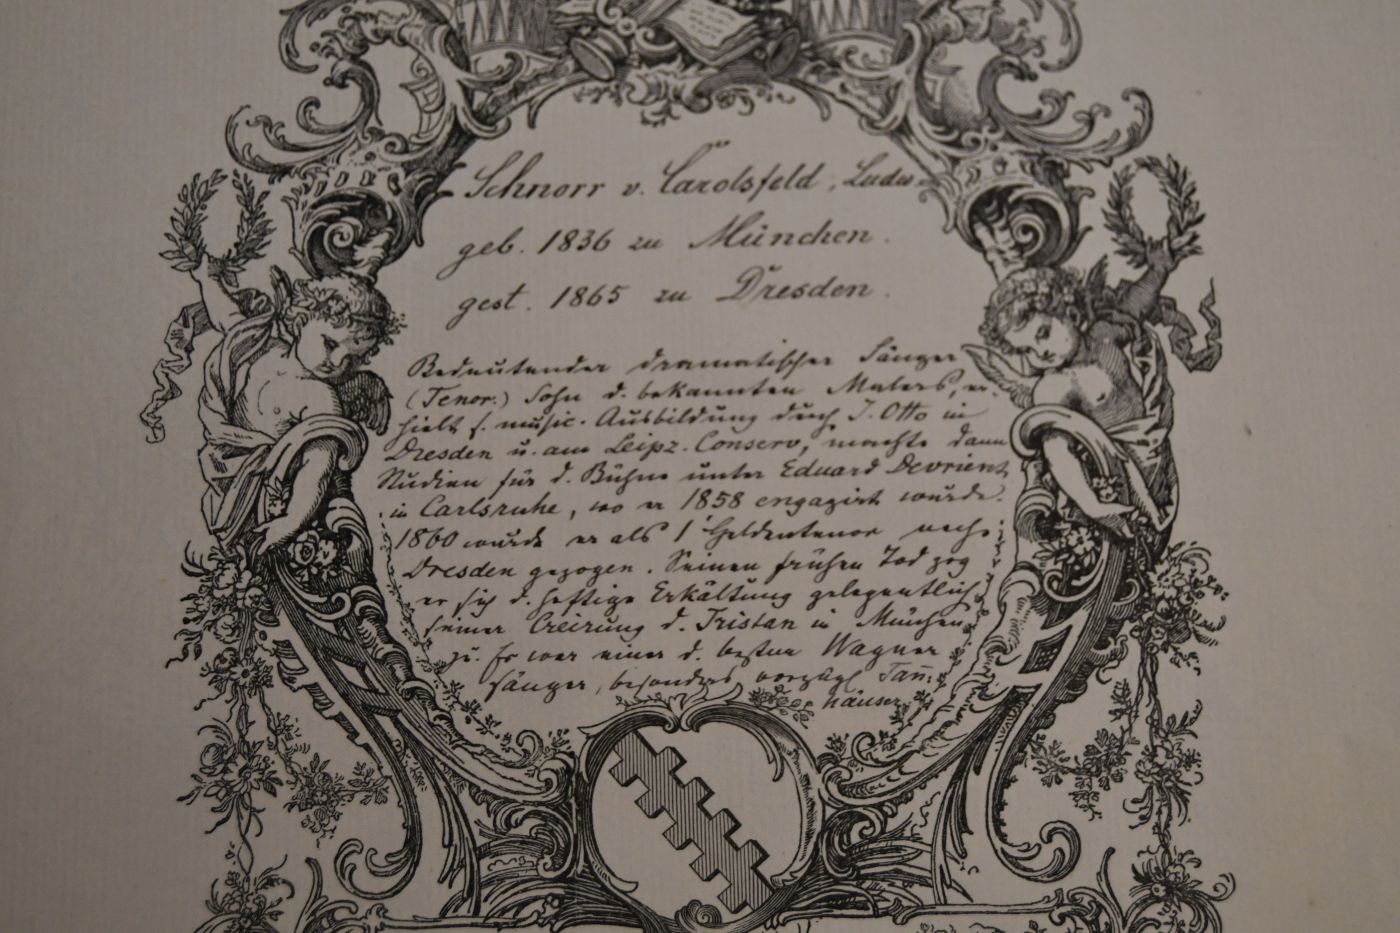 Schnorr v. Carolsfeld, Ludw.
geb. 1836 zu München.
gest. 1865 zu Dresden.
Bedeutender dramatischer Sänger
(Tenor.) Sohn d. bekannten Malers, er-
hielt s. music. Ausbildung durch J. Otto in
Dresden u. am Leipz. Conserv, machte dann
Studien für d. Bühne unter Eduard Devrient
in Carlsruhe, wo er 1858 engagirt wurde.
1860 wurde er als 1. Heldentenor nach
Dresden gezogen. Seinen frühen Tod zog
er sich d. heftige Erkältung gelegentlich
seiner Creirung d. Tristan in München
zu. Er war einer d. besten Wagner
sänger, besonders vorzügl Tann-
häuser